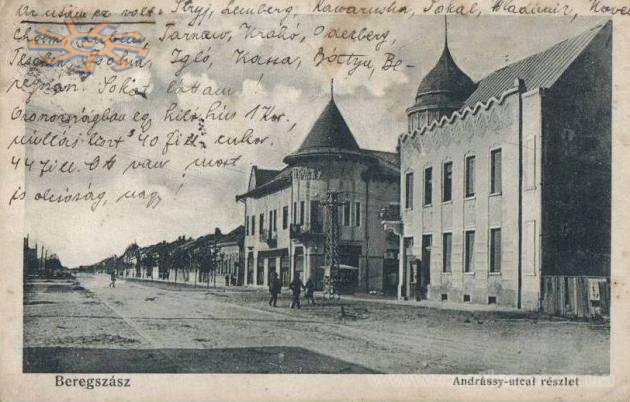 az utam ez volt: Stryj, Lemberg, Rawaruska, Sokal, Wladimir, Kowel
Chelm, Lublin, Tarnow, Krakó, Oderberg,
Teschen, Zsolna, Igló, Kassa, Bátyu, Be-
regszász. Sokat láttam!
Oroszországban egy kiló hús 1 Kor.,
liszt 40 fill. cukor
44 fill. Ott van most
is olcsóság, nagy!
Beregszász
Andrássy-utcai részlet